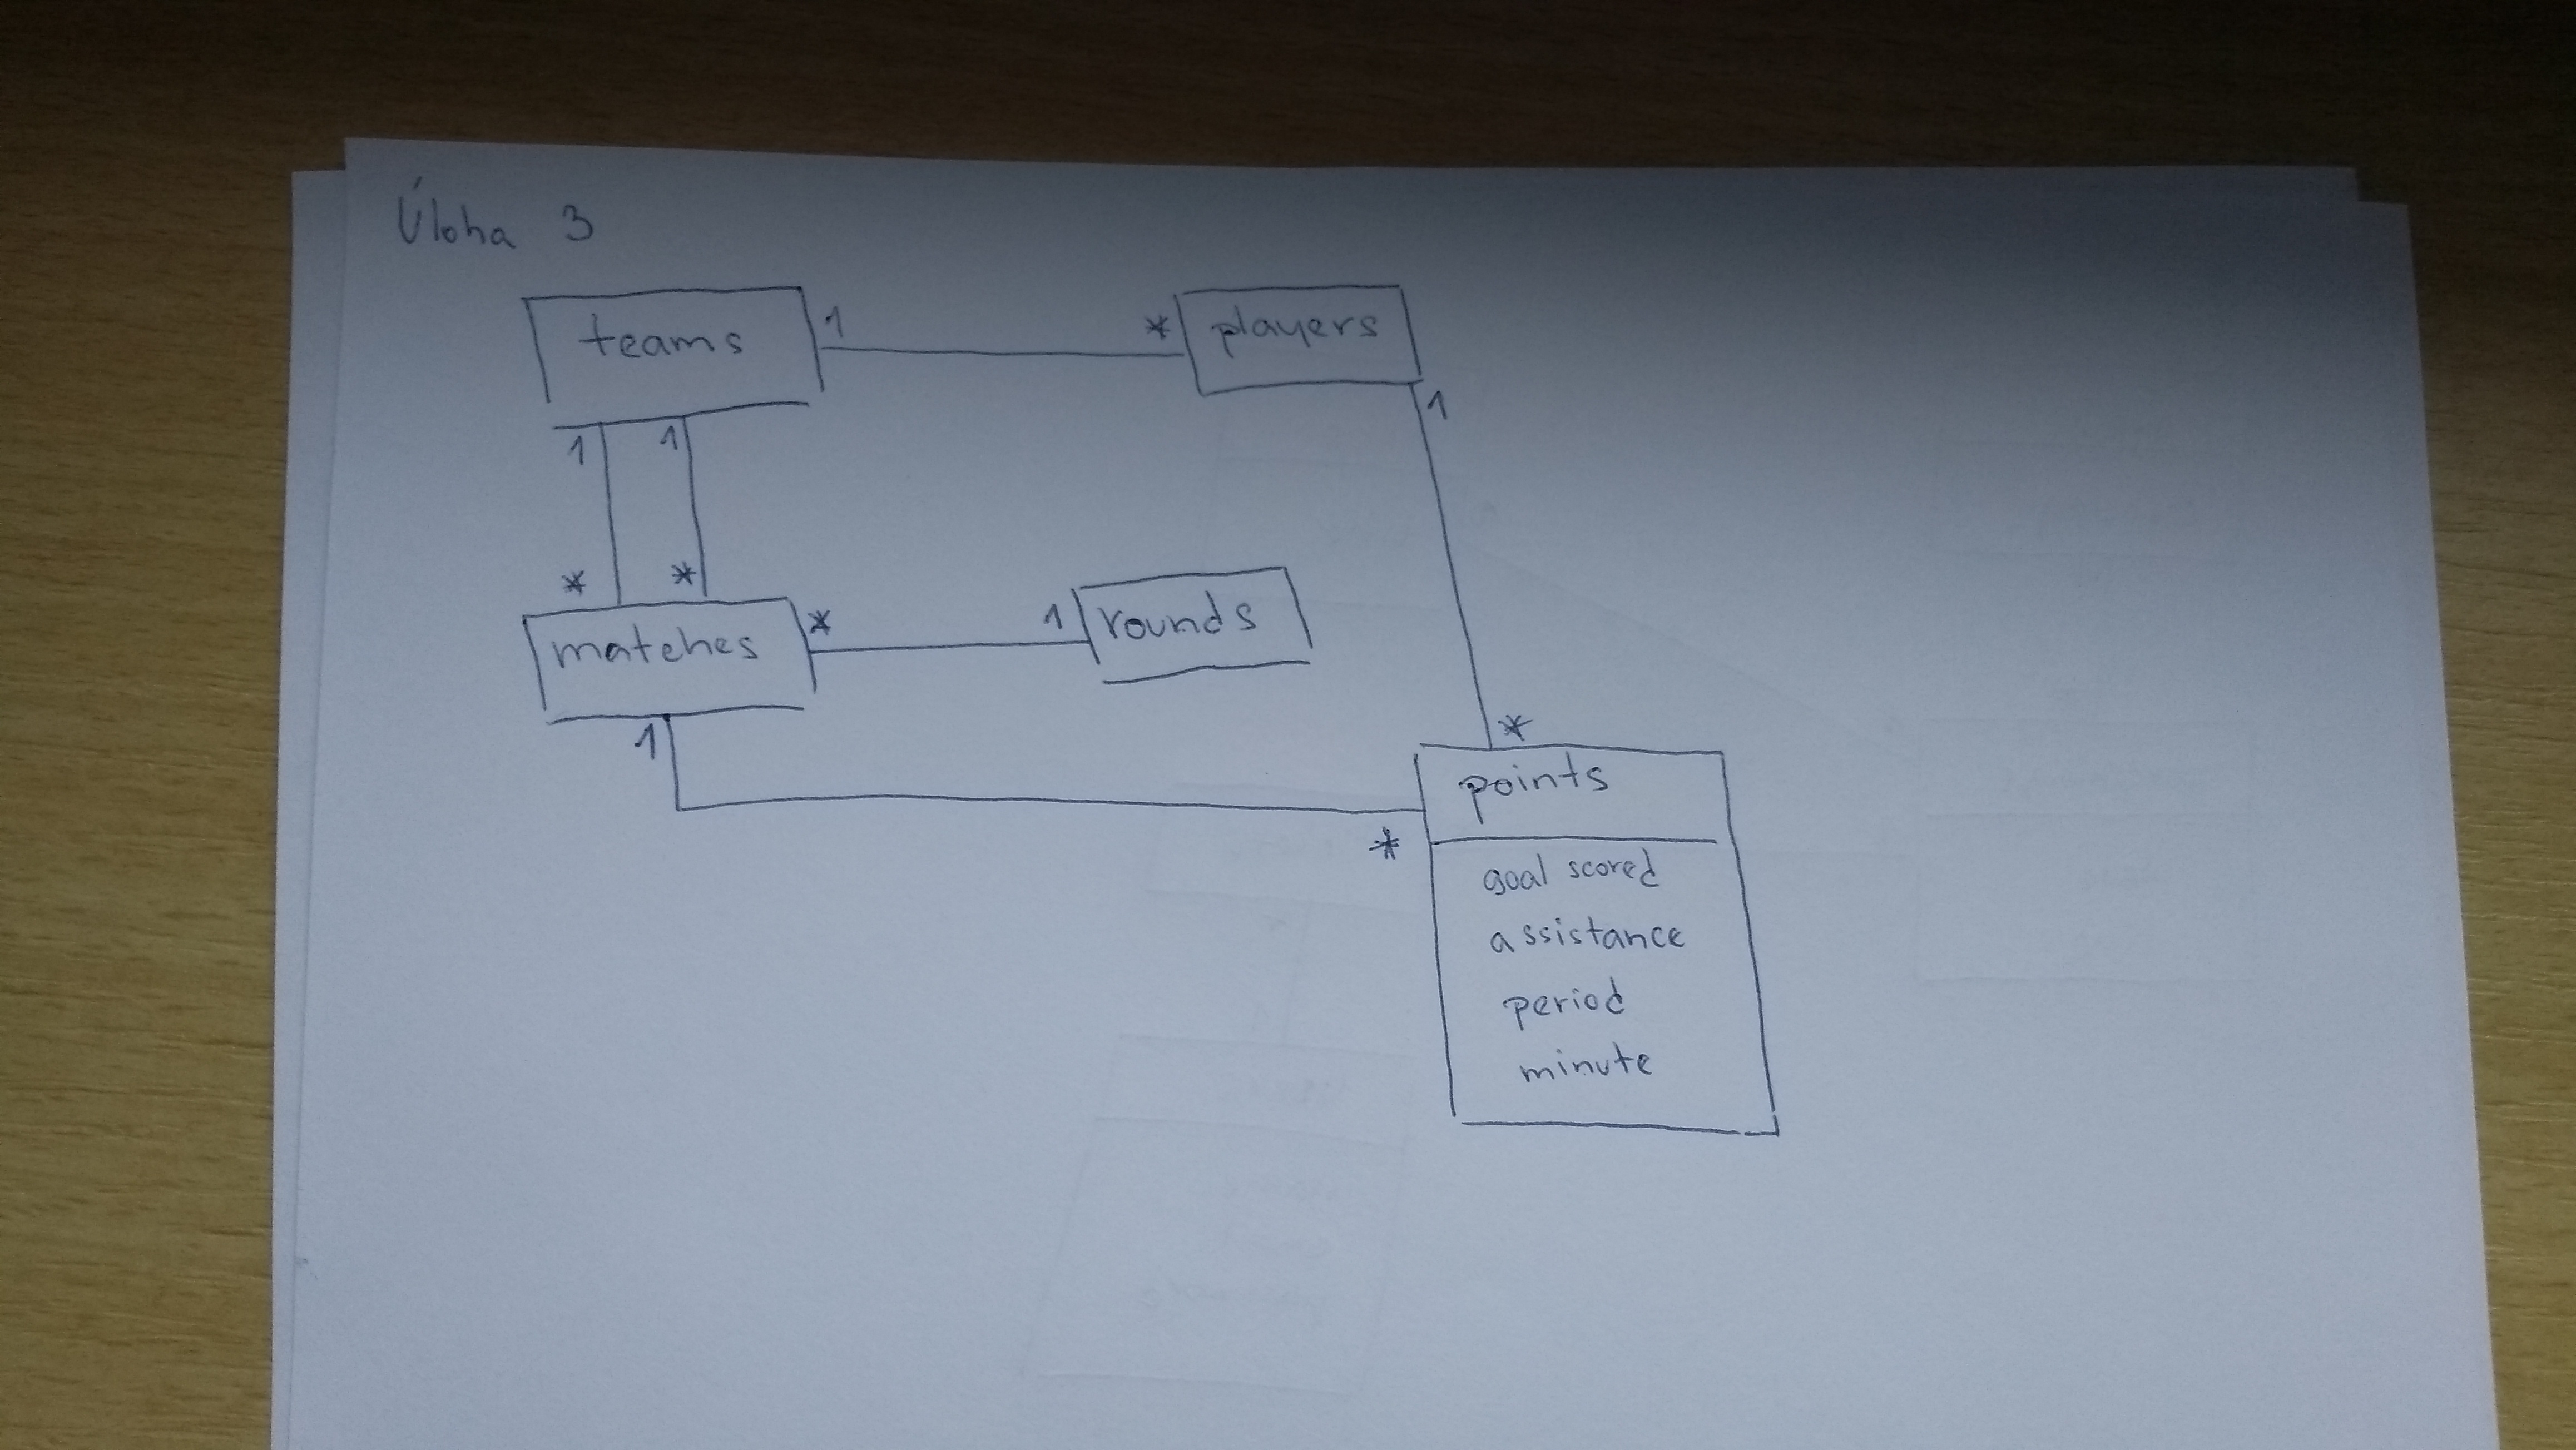 Úloha 3
teams 1 * players
1 1 1
* *
matches * 1 rounds
1 *
points
*
goal scored
assistance
period
minute